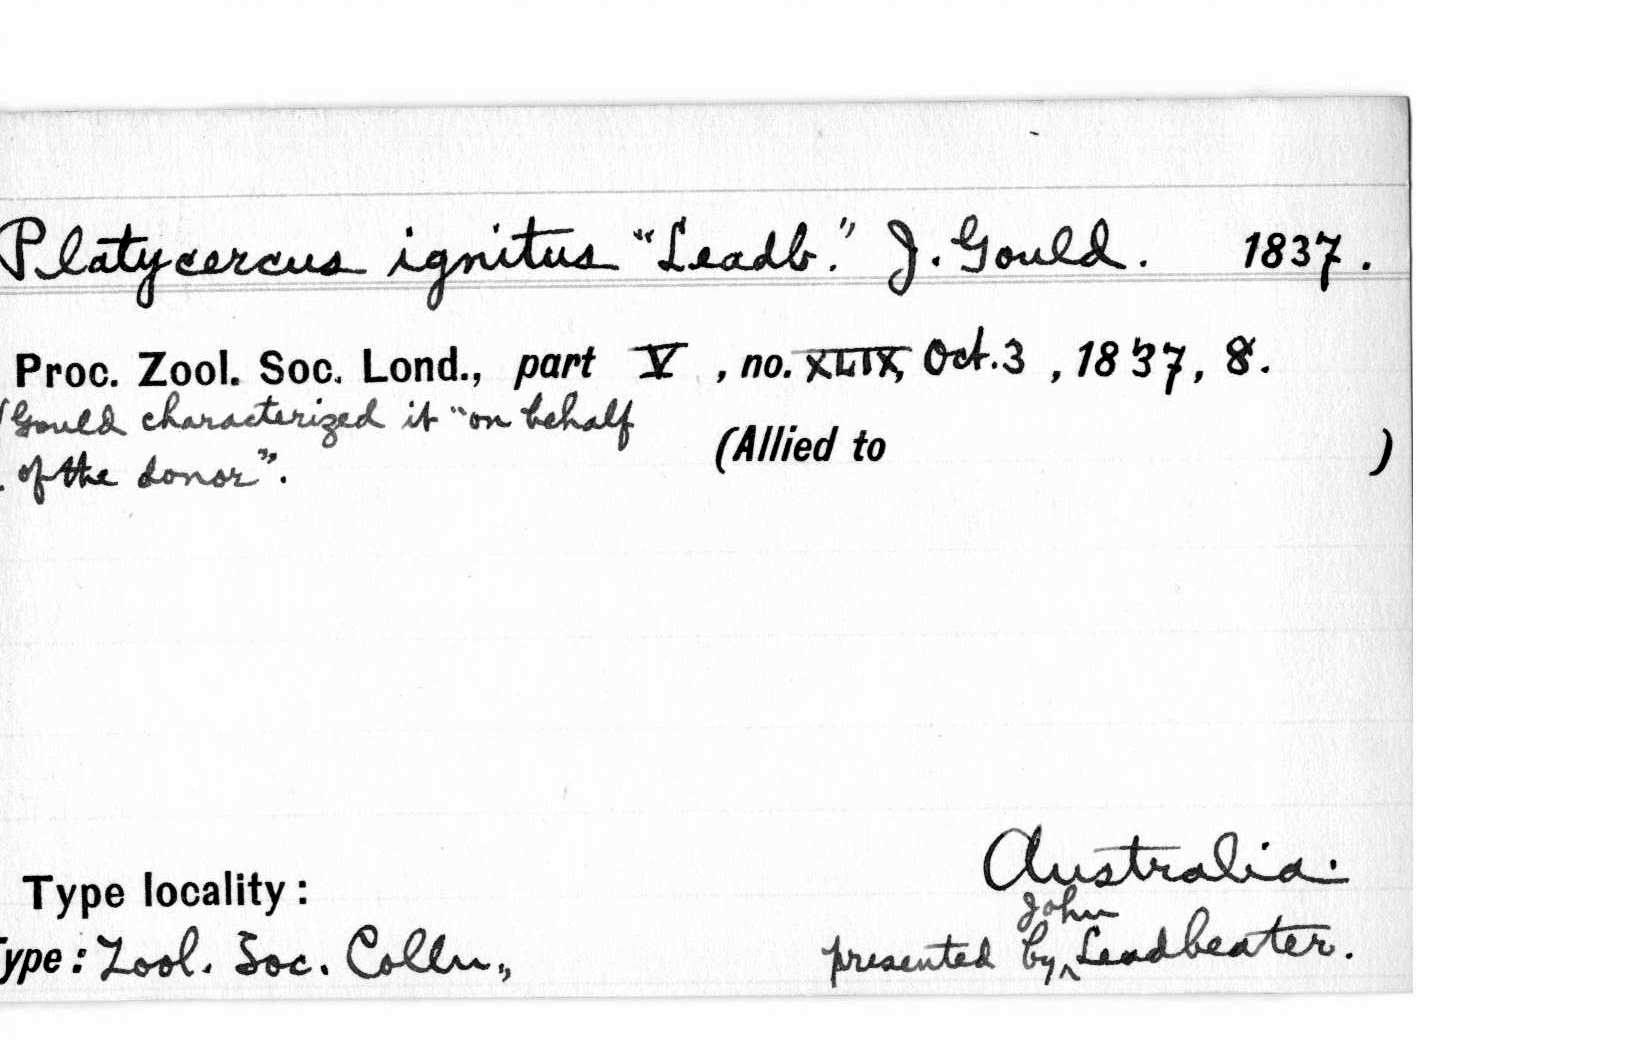 Platycercus ignitus "Leadb." J. Gould. 1837.
Proc. Zool. Soc. Lond., part V, no. XLIX, Oct. 3, 1837, 8.
(Gould characterized it "on behalf
of the donor".
(Allied to )
Australia.
Type locality:
John
ype: Zool. Soc. Colln., presented by ^ Leadbeater.